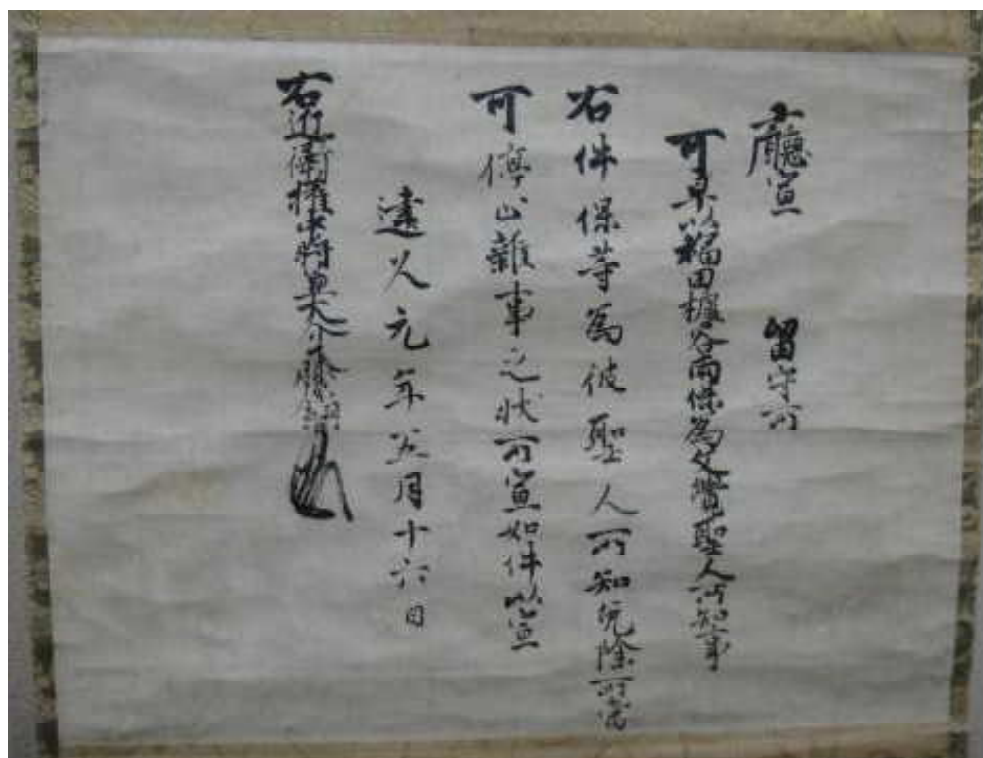 廳宣 留守所
可早以稲田樴谷両保為文覚聖人所知事
右件保等為彼聖人所知免除所当
可停止雑事之状所宣如件以宣
建久元年五月十六日
右近衛権中将兼大介藤原朝臣